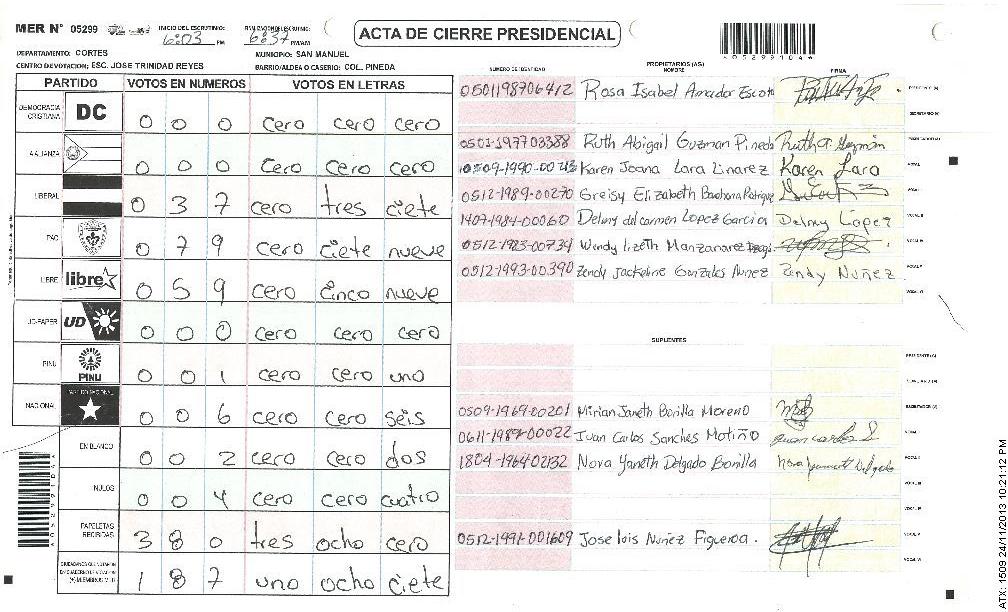 MER N° 05299 INICIO DEL ESCRUTINIO: 6:03 PM 6:37 PM/AM
ACTA DE CIERRE PRESIDENCIAL
052991044
DEPARTAMENTO: CORTES MUNICIPIO: SAN MANUEL
CENTRO DE VOTACION: ESC. JOSE TRINIDAD REYES BARRIO/ALDEA O CASERIO: COL. PINEDA
PARTIDO VOTOS EN NUMEROS VOTOS EN LETRAS
DEMOCRACIA CRISTIANA DC 0 0 0 cero cero cero
0 0 0 cero cero cero
LIBERAL 0 3 7 cero tres ciete
PAC 0 7 9 cero ciete nueve
LIBRE libre 0 5 9 cero cinco nueve
UD-FAPER UD 0 0 0 cero cero cero
PINU PINU 0 0 1 cero cero uno
NACIONAL 0 0 6 cero cero seis
EN BLANCO 0 0 2 cero cero dos
NULOS 0 0 4 cero cero cuatro
PAPELETAS RECIBIDAS 3 8 0 tres ocho cero
1 8 7 uno ocho ciete
PROPIETARIOS (AS)
NUMERO DE IDENTIDAD NOMBRE FIRMA
0501198706412 Rosa Isabel Amador Escoto
0501-197703388 Ruth Abigail Guzman Pineda Ruth a Guzmán
Karen Joana Lara Linarez Karen Lara
0512-1989-00270 Greisy Elizabeth
1407-1984-00060 Delmy del carmen Lopez Garcia Delmy Lopez
0512-1923-00734 Wendy lizeth Manzanarez
0512-1993-00390 Zendy Jackeline Gonzales Nunez Zendy Nuñez
SUPLENTES
0509-1969-00201 Mirian Janeth Bonilla Moreno
0611-1989-00022 Juan Carlos Sanches Motiño Juan carlos S
1804-196402132 Nora Yaneth Delgado Bonilla Nora Yaneth Delgado
0512-1991-001609 Jose lois Nuñez Figueroa.
ATX: 1509 24/11/2013 10:21:12 PM